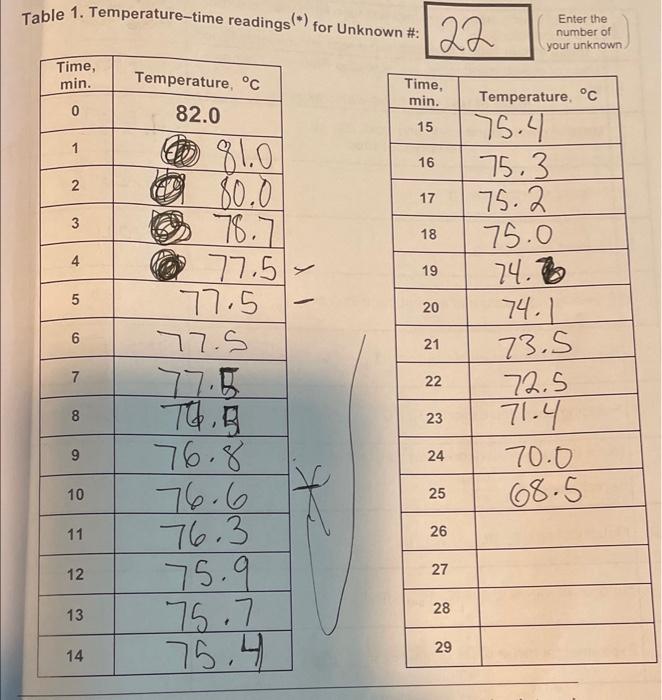 Table 1. Temperature–time readings(*) for Unknown #: 22
Enter the
number of
your unknown
Time,
min. Temperature, °C
0 82.0
1 81.0
2 80.0
3 78.7
4 77.5
5 77.5
6 77.5
7 77.5
8
9 76.8
10 76.6
11 76.3
12 75.9
13 75.7
14 75.4
Time,
min. Temperature, °C
15 75.4
16 75.3
17 75.2
18 75.0
19 74.
20 74.1
21 73.5
22 72.5
23 71.4
24 70.0
25 68.5
26
27
28
29